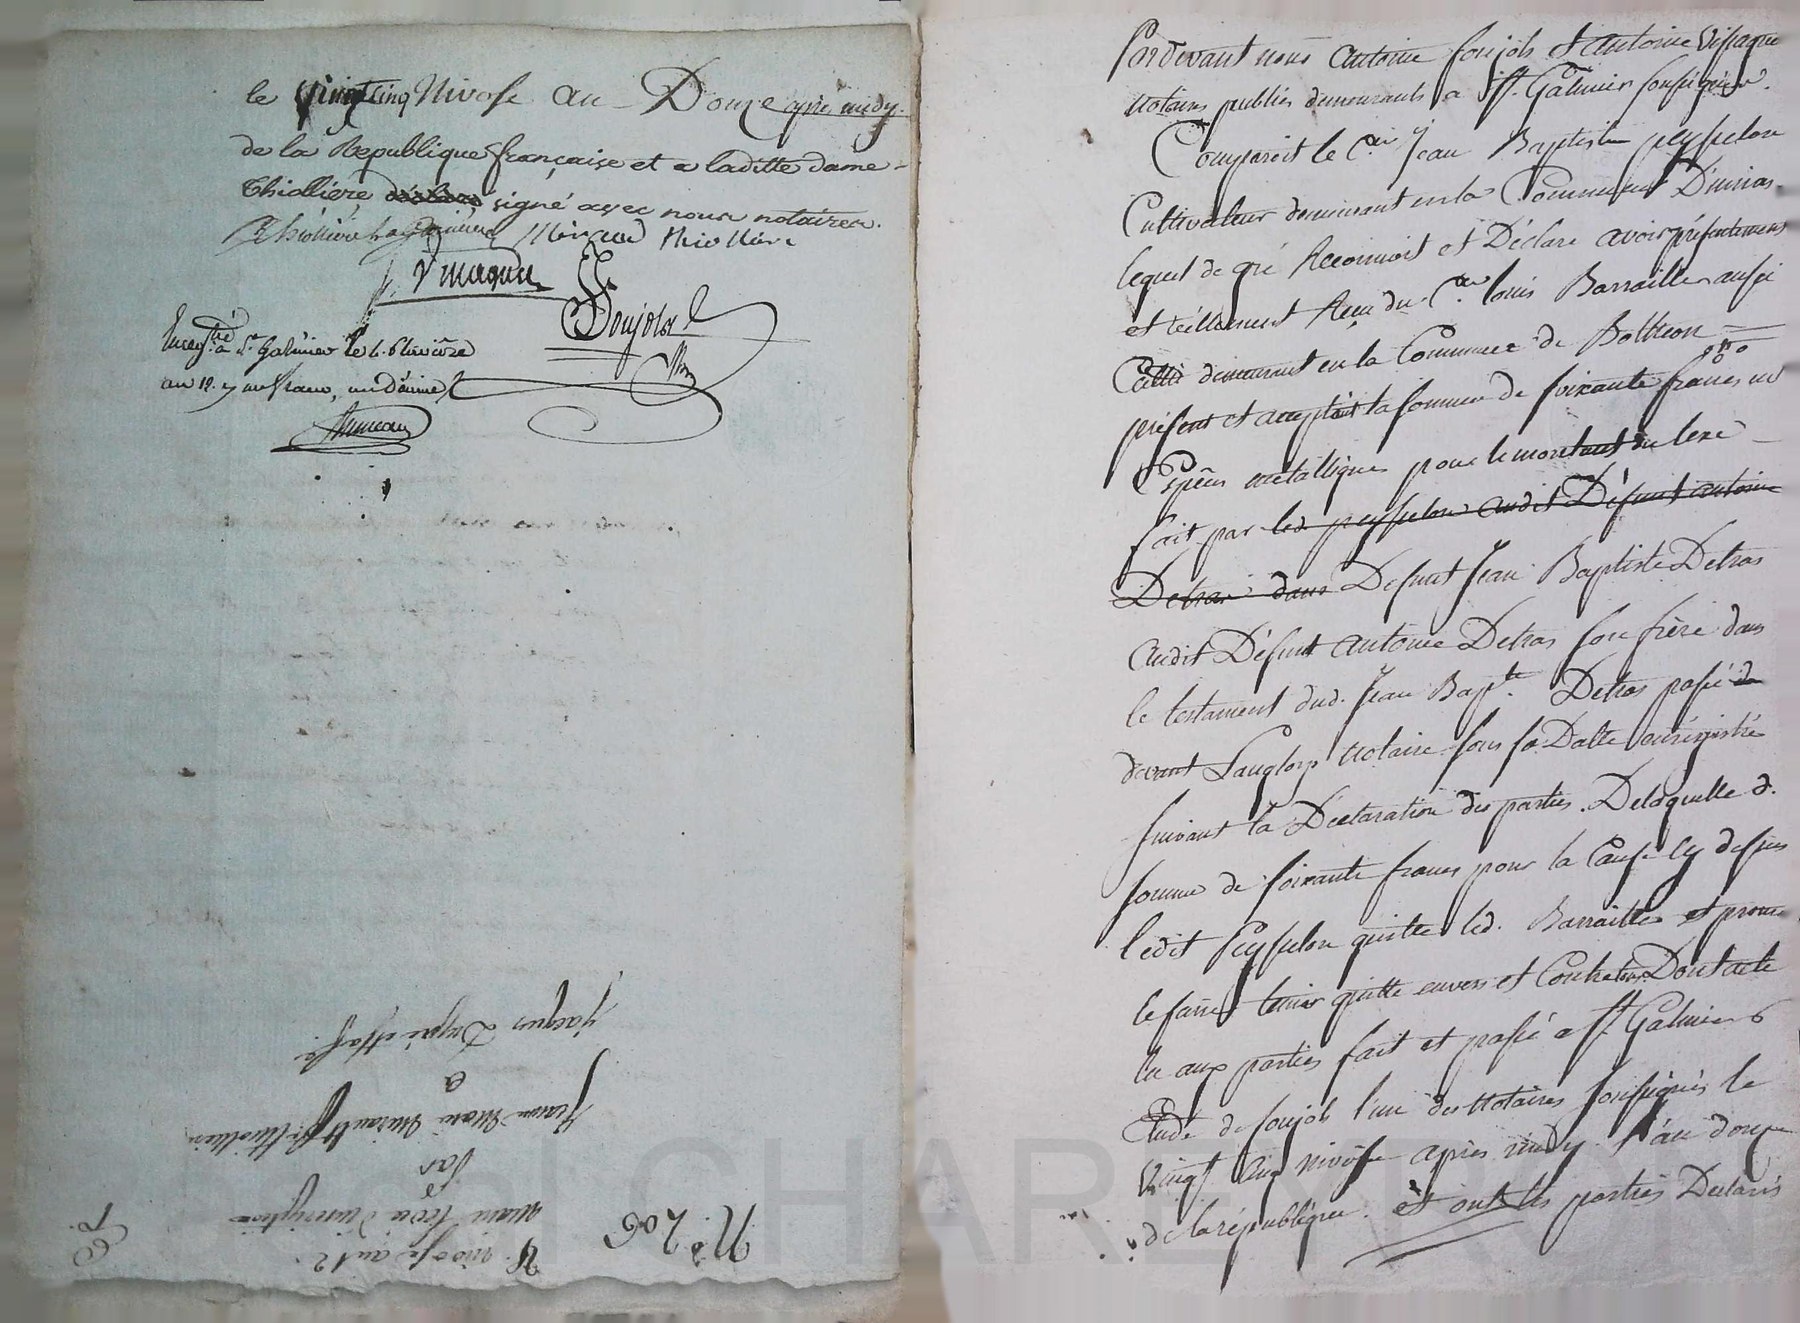 le vingt cinq Nivose an Douze après midy.
de la Republique française et a laditte dame
Thiollière déclaré signé avec nous notaires.
Thiollière
Doujols
Enregtré à St Galmier le 4 Pluviôse
an 12. un franc, un décime
N° 206
nivose an 12.
main levée d'inscription
Par
Jean Marie
a
Jacques
60
Pardevant nous Antoine foujols et Antoine
notaires publics demeurants a St. Galmier soussignés.
Comparoit le Cen Jean Baptiste peysselon
Cultivateur demeurant en la Commune D'
lequel de gré Reconnoit et Déclare avoir présentement
et réellement Reçu du Cen louis Barrailler aussi
demeurant en la Commune de Bothéon
présent et acceptant la somme de soixante francs en
Espèces métalliques pour le montant du lexe
fait par led. peysselon audit Défunt antoine
Detras dans Defunt Jean Baptiste Detras
audit Défunt antoine Detras son frère dans
le testament dud. Jean Bapte. Detras passé d
devant Langlois notaire sous sa Datte enrégistré
suivant la Déclaration des parties. Delaquelle d.
somme de soixante francs pour la Cause cy dessus
ledit Peysselon quitte led. Barrailler et promet
le faire tenir quitte envers et Contre tous Dont acte
lu aux parties fait et passé a St. Galmier
Etude de foujols l'un des Notaires soussignés le
vingt cinq nivôse après midy l'an douze
de la république. et ont les parties Declaré
CHAREYRON